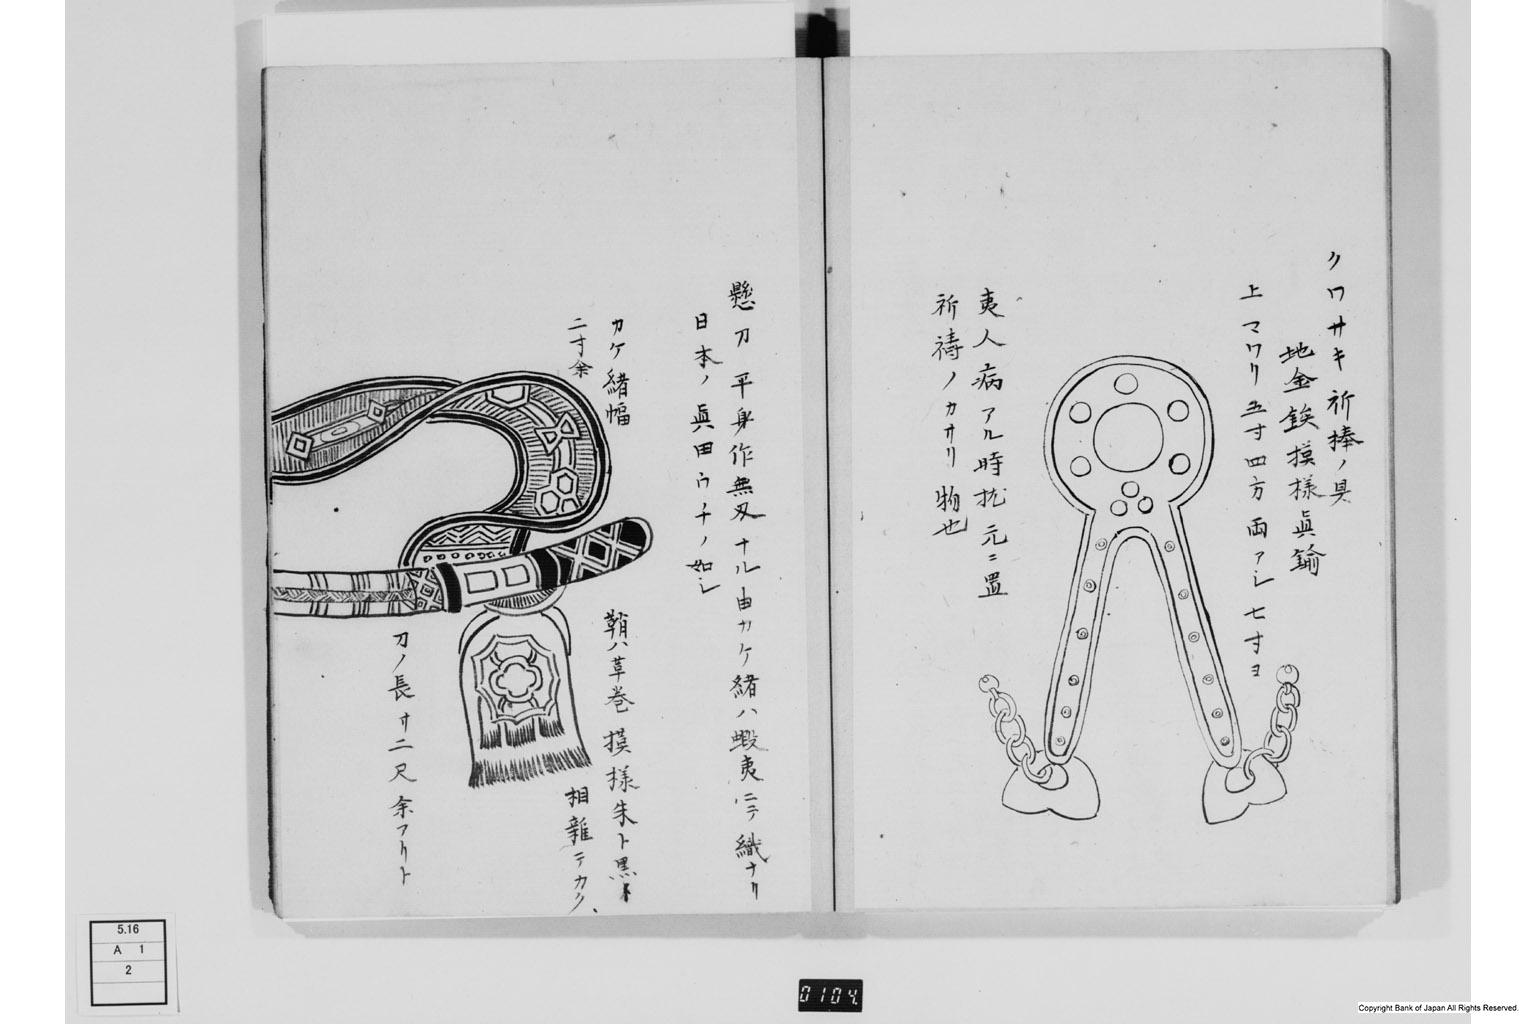 クワサキ 祈捧ノ具
地金鉄摸様眞鍮
上マワリ五寸四方 両アシ七寸ヨ
夷人病アル時枕元ニ置
祈禱ノカサリ物也
懸刀 平身作無刄ナル由カケ緒ハ蝦夷ニテ織ナリ
日本ノ眞田ウチノ如シ
カケ緒幅
二寸余
鞘ハ草巻 摸様朱ト黒ト
相雜テカク
刀ノ長サ二尺余アリト
5.16
A 1
2
0104
Copyright Bank of Japan All Rights Reserved.